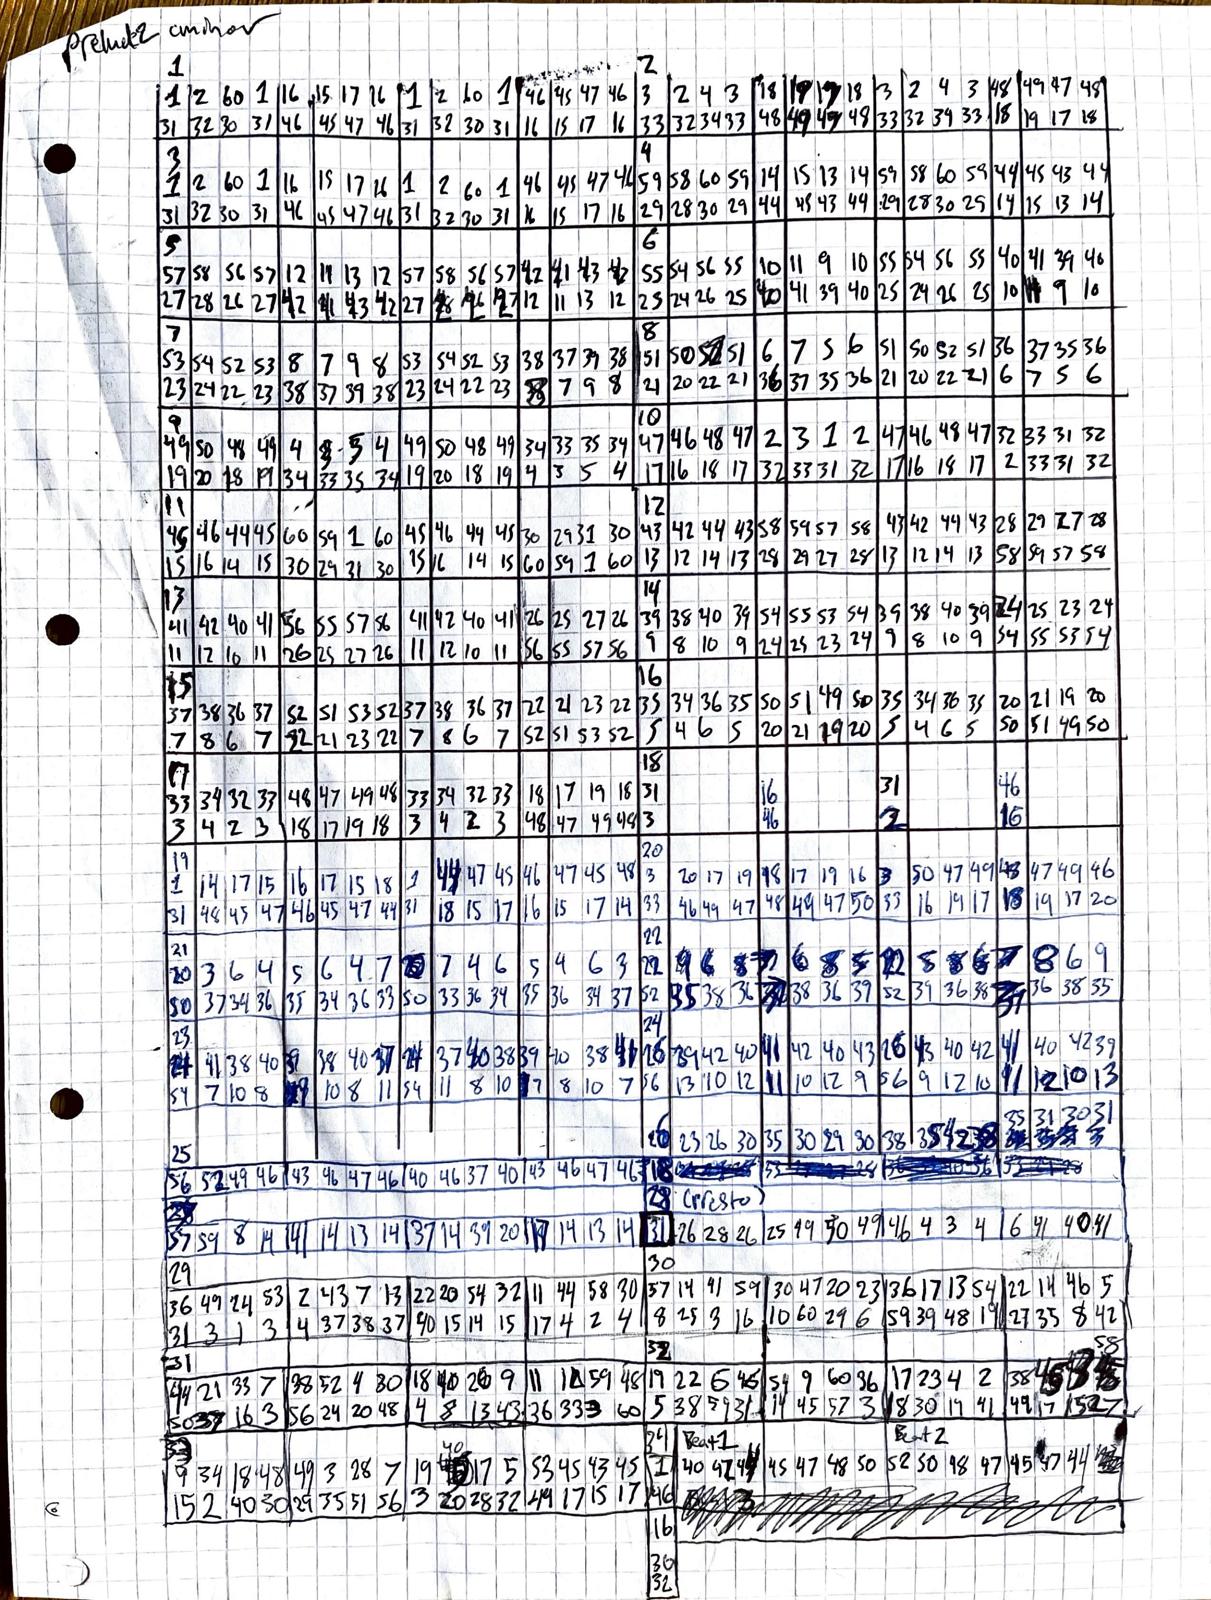 Prelude 2 c minor
1 2
1 2 60 1 16 15 17 16 1 2 60 1 46 45 47 46 3 2 4 3 18 19 17 18 3 2 4 3 48 49 47 48
31 32 30 31 46 45 47 46 31 32 30 31 16 15 17 16 33 32 34 33 48 49 47 48 33 32 34 33 18 19 17 18
3 4
1 2 60 1 16 15 17 16 1 2 60 1 46 45 47 46 59 58 60 59 14 15 13 14 59 58 60 59 44 45 43 44
31 32 30 31 46 45 47 46 31 32 30 31 16 15 17 16 29 28 30 29 44 45 43 44 29 28 30 29 14 15 13 14
5 6
57 58 56 57 12 11 13 12 57 58 56 57 42 41 43 42 55 54 56 55 10 11 9 10 55 54 56 55 40 41 39 40
27 28 26 27 42 41 43 42 27 28 26 27 12 11 13 12 25 24 26 25 40 41 39 40 25 24 26 25 10 11 9 10
7 8
53 54 52 53 8 7 9 8 53 54 52 53 38 37 39 38 51 50 52 51 6 7 5 6 51 50 52 51 36 37 35 36
23 24 22 23 38 37 39 38 23 24 22 23 8 7 9 8 21 20 22 21 36 37 35 36 21 20 22 21 6 7 5 6
9 10
49 50 48 49 4 3 5 4 49 50 48 49 34 33 35 34 47 46 48 47 2 3 1 2 47 46 48 47 32 33 31 32
19 20 18 19 34 33 35 34 19 20 18 19 4 3 5 4 17 16 18 17 32 33 31 32 17 16 18 17 2 33 31 32
11 12
45 46 44 45 60 59 1 60 45 46 44 45 30 29 31 30 43 42 44 43 58 59 57 58 43 42 44 43 28 29 27 28
15 16 14 15 30 29 31 30 15 16 14 15 60 59 1 60 13 12 14 13 28 29 27 28 13 12 14 13 58 59 57 58
13 14
41 42 40 41 56 55 57 56 41 42 40 41 26 25 27 26 39 38 40 39 54 55 53 54 39 38 40 39 24 25 23 24
11 12 10 11 26 25 27 26 11 12 10 11 56 55 57 56 9 8 10 9 24 25 23 24 9 8 10 9 54 55 53 54
15 16
37 38 36 37 52 51 53 52 37 38 36 37 22 21 23 22 35 34 36 35 50 51 49 50 35 34 36 35 20 21 19 20
7 8 6 7 22 21 23 22 7 8 6 7 52 51 53 52 5 4 6 5 20 21 19 20 5 4 6 5 50 51 49 50
17 18
33 34 32 33 48 47 49 48 33 34 32 33 18 17 19 18 31 16 31 46
3 4 2 3 18 17 19 18 3 4 2 3 48 47 49 48 3 46 2 16
19 20
1 14 17 15 16 17 15 18 1 44 47 45 46 47 45 48 3 20 17 19 18 17 19 16 3 50 47 49 48 47 49 46
31 48 45 47 46 45 47 44 31 18 15 17 16 15 17 14 33 46 49 47 48 49 47 50 33 16 19 17 18 19 17 20
21 22
20 3 6 4 5 6 4 7 20 7 4 6 5 4 6 3 22 9 6 8 7 6 8 5 22 5 8 6 7 8 6 9
50 37 34 36 35 34 36 33 50 33 36 34 35 36 34 37 52 35 38 36 37 38 36 39 52 39 36 38 37 36 38 35
23 24
24 41 38 40 39 38 40 37 24 37 40 38 39 40 38 41 26 39 42 40 41 42 40 43 26 43 40 42 41 40 42 39
54 7 10 8 9 10 8 11 54 11 8 10 8 10 7 56 13 10 12 11 10 12 9 56 9 12 10 11 12 10 13
35 31 30 31
25 26 23 26 30 35 30 29 30 38
56 52 49 46 43 46 47 46 40 46 37 40 43 46 47 46 18
28 (presto)
57 59 8 14 14 14 13 14 37 14 39 20 17 14 13 14 31 26 28 26 25 49 50 49 46 4 3 4 6 41 40 41
29 30
36 49 24 53 2 43 7 13 22 20 54 32 11 44 58 30 57 14 41 59 30 47 20 23 36 17 13 54 22 14 46 5
31 3 1 3 4 37 38 37 40 15 14 15 17 4 2 4 8 25 3 16 10 60 29 6 59 39 48 19 27 35 8 42
31 32 58
44 21 33 7 38 52 4 30 18 40 26 9 11 59 48 19 22 6 54 9 60 36 17 23 4 2 38
50 16 3 56 24 20 48 4 8 13 43 36 33 60 5 38 59 31 14 45 57 3 18 30 19 41 49 17 15
33 40 34 Beat 1 Beat 2
9 34 18 48 49 3 28 7 19 17 5 53 45 43 45 1 40 42 44 45 47 48 50 52 50 48 47 45 47 44
15 2 40 30 29 35 51 56 3 20 28 32 49 17 15 17 46
16
30
32